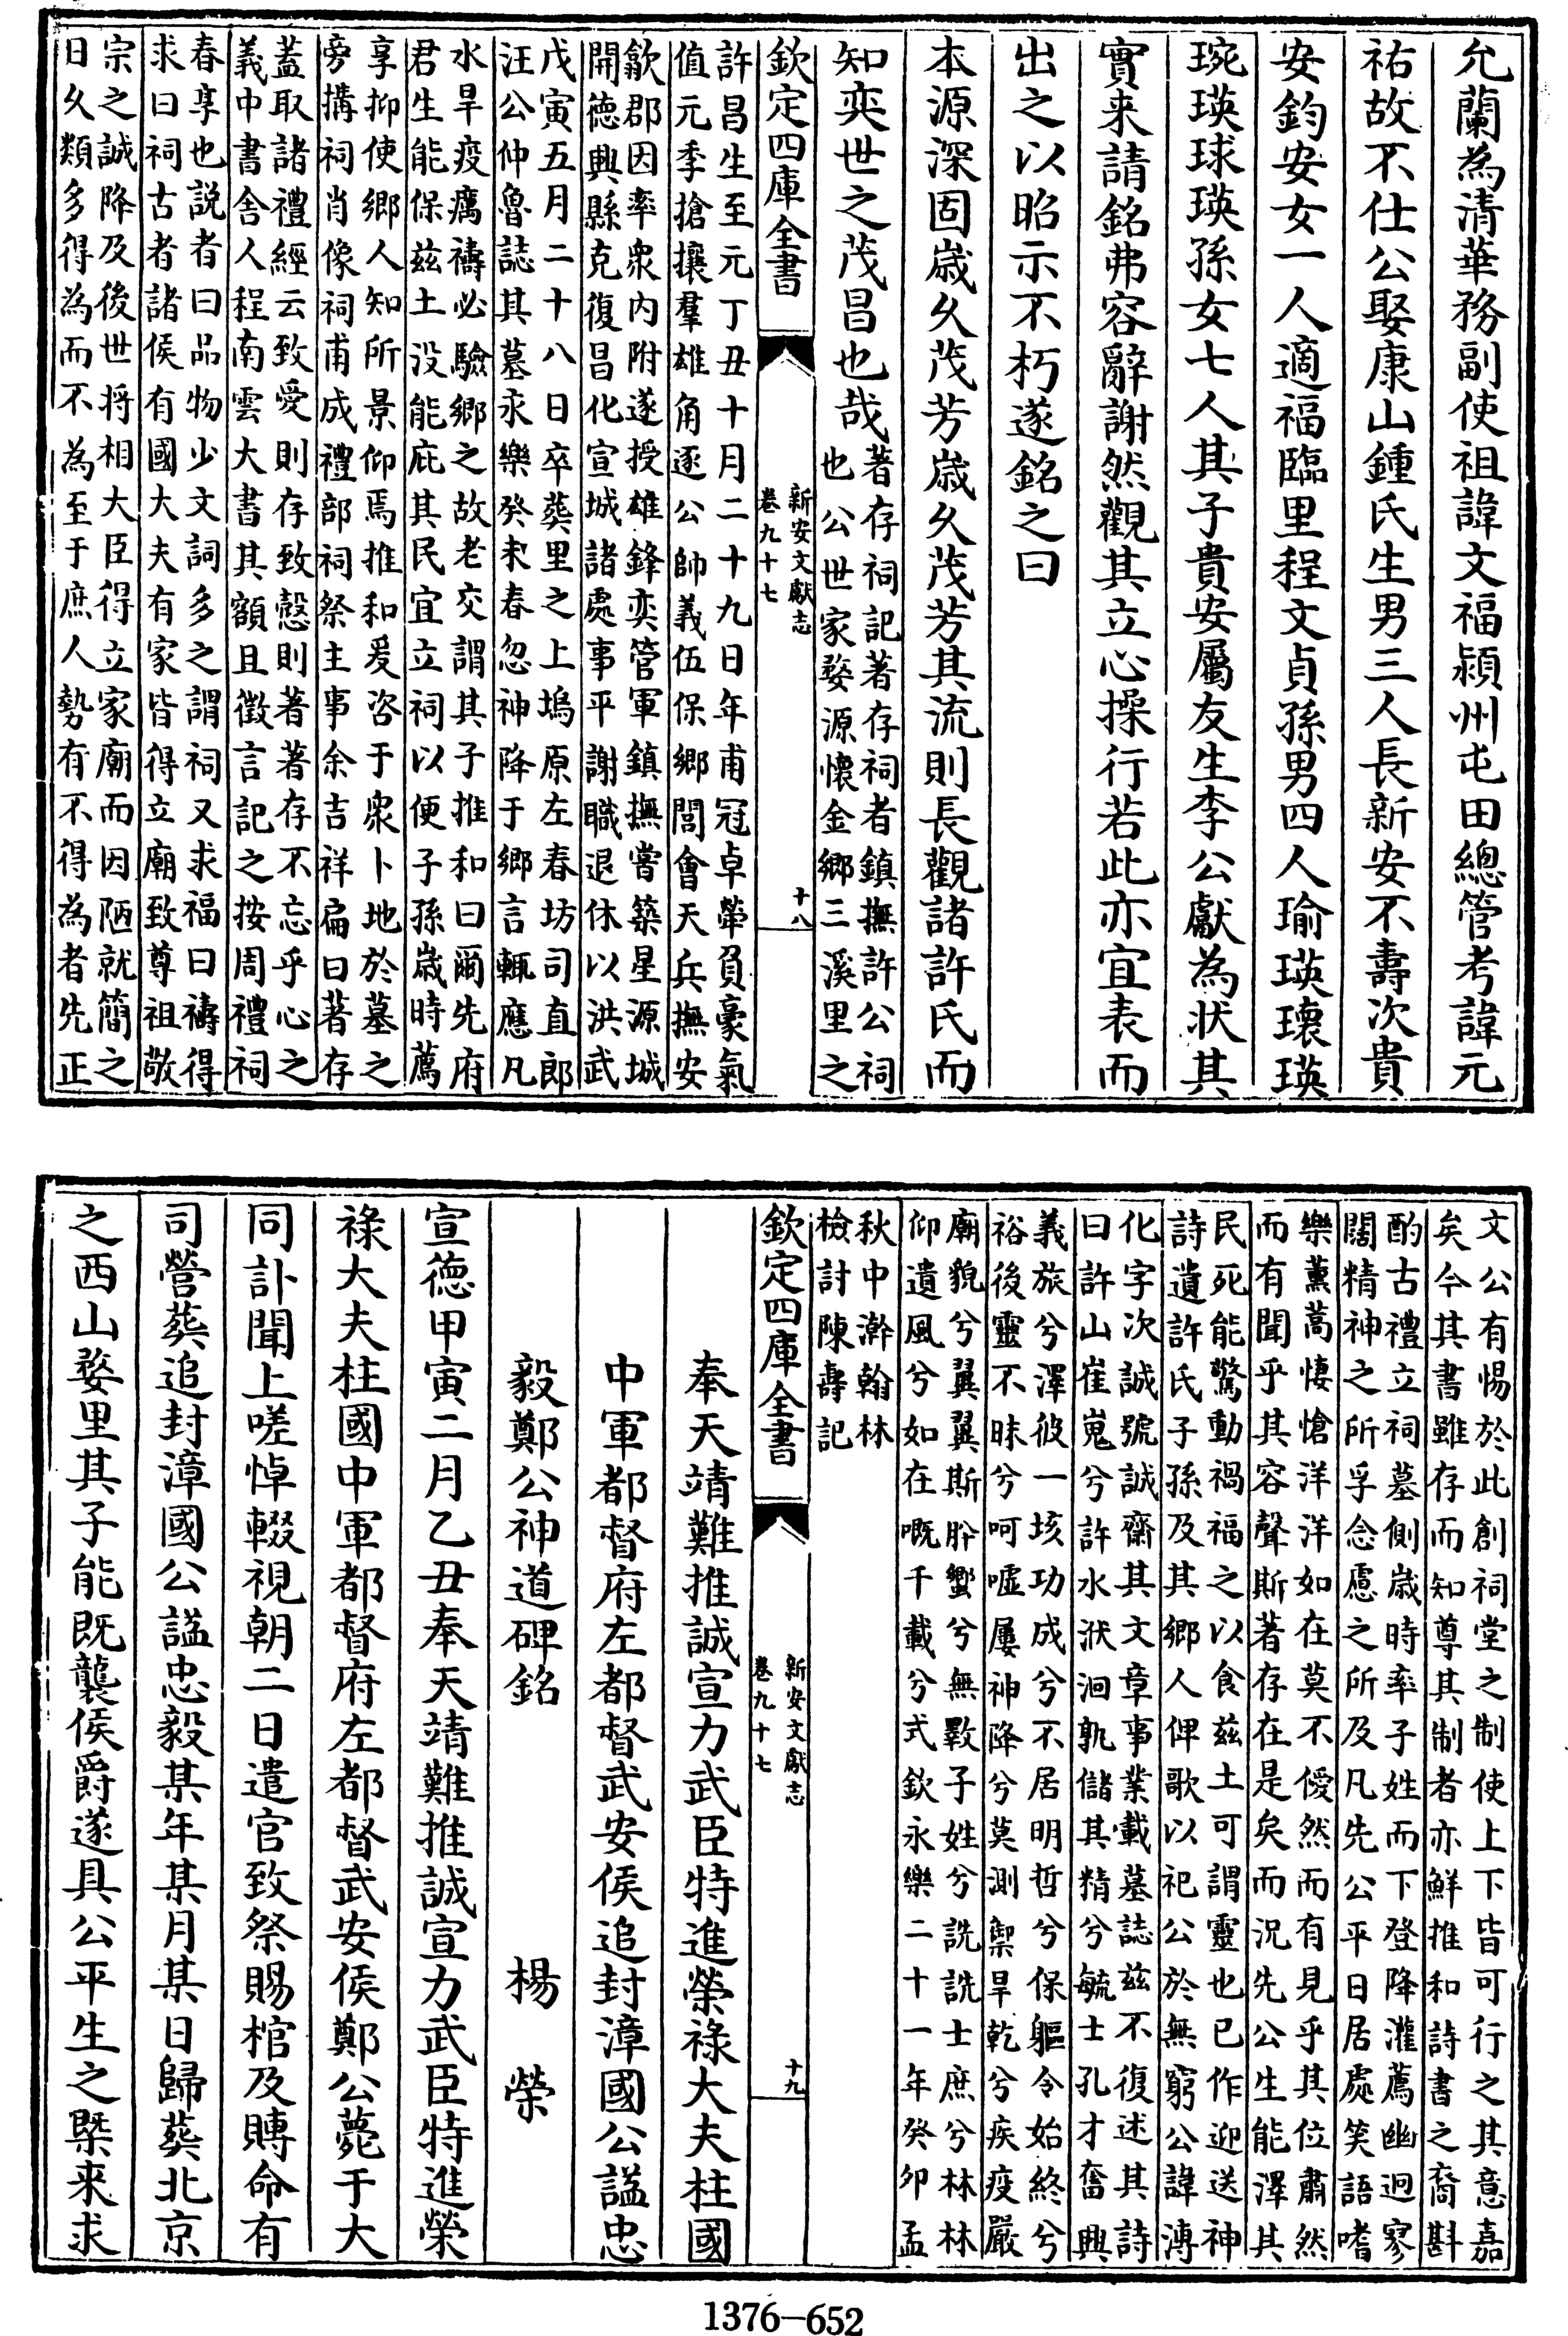 允蘭為清華務副使祖諱文福潁州屯田總管考諱元
祐故不仕公娶康山鍾氏生男三人長新安不壽次貴
安鈞安女一人適福臨里程文貞孫男四人瑜瑛瓌瑛
琬瑛球瑛孫女七人其子貴安屬友生李公獻為狀其
實来請銘弗容辭謝然觀其立心操行若此亦宜表而
出之以昭示不朽遂銘之曰
本源深固歳久茂芳歳久茂芳其流則長觀諸許氏而
知奕世之茂昌也哉
著存祠記著存祠者鎮撫許公祠
也公世家婺源懷金鄉三溪里之
欽定四庫全書
新安文獻志
卷九十七
十八
許昌生至元丁丑十月二十九日年甫冠卓犖負豪氣
值元季搶攘羣雄角逐公帥義伍保鄉閭會天兵撫安
歙郡因率衆内附遂授雄鋒奕管軍鎮撫嘗築星源城
開德興縣克復昌化宣城諸處事平謝職退休以洪武
戊寅五月二十八日卒葬里之上塢原左春坊司直郎
汪公仲魯誌其墓永樂癸未春忽神降于鄉言輒應凡
水旱疫癘禱必驗鄉之故老交謂其子推和曰爾先府
君生能保兹土没能庇其民宜立祠以便子孫歳時薦
享抑使鄉人知所景仰焉推和爰咨于衆卜地於墓之
旁搆祠肖像祠甫成禮部祠祭主事余吉祥扁曰著存
蓋取諸禮經云致愛則存致慤則著著存不忘乎心之
義中書舍人程南雲大書其額且徵言記之按周禮祠
春享也説者曰品物少文詞多之謂祠又求福曰禱得
求曰祠古者諸侯有國大夫有家皆得立廟致尊祖敬
宗之誠降及後世将相大臣得立家廟而因陋就簡之
日久類多得為而不為至于庶人勢有不得為者先正
文公有惕於此創祠堂之制使上下皆可行之其意嘉
矣今其書雖存而知尊其制者亦鮮推和詩書之裔斟
酌古禮立祠墓側歳時率子姓而下登降灌薦幽迥寥
闊精神之所孚念慮之所及凡先公平日居處笑語嗜
樂薰蒿悽愴洋洋如在莫不僾然而有見乎其位肅然
而有聞乎其容聲斯著存在是矣而況先公生能澤其
民死能驚動禍福之以食兹土可謂靈也已作迎送神
詩遺許氏子孫及其鄉人俾歌以祀公於無窮公諱漙
化字次誠號誠齋其文章事業載墓誌兹不復述其詩
曰許山崔嵬兮許水洑洄孰儲其精兮毓士孔才奮興
義旅兮澤彼一垓功成兮不居明哲兮保軀令始終兮
裕後靈不昧兮呵嘘屢神降兮莫測禦旱乾兮疾疫嚴
廟貌兮翼翼斯肸蠁兮無斁子姓兮詵詵士庶兮林林
仰遺風兮如在嘅千載兮式欽永樂二十一年癸卯孟
秋中澣翰林
檢討陳壽記
欽定四庫全書
新安文獻志
卷九十七
十九
奉天靖難推誠宣力武臣特進榮祿大夫柱國
中軍都督府左都督武安侯追封漳國公諡忠
毅鄭公神道碑銘　楊榮
宣德甲寅二月乙丑奉天靖難推誠宣力武臣特進榮
祿大夫柱國中軍都督府左都督武安侯鄭公薨于大
同訃聞上嗟悼輟視朝二日遣官致祭賜棺及賻命有
司營葬追封漳國公諡忠毅某年某月某日歸葬北京
之西山婺里其子能既襲侯爵遂具公平生之槩来求
1376-652